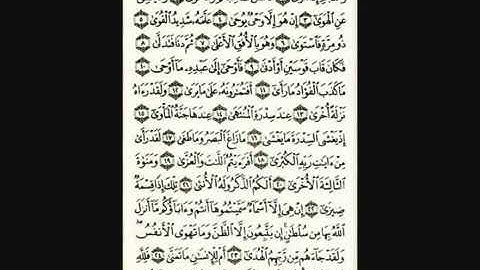 عَنِ ٱلْهَوَىٰٓ ٣ إِنْ هُوَ إِلَّا وَحْىٌ يُوحَىٰ ٤ عَلَّمَهُۥ شَدِيدُ ٱلْقُوَىٰ ٥
ذُو مِرَّةٍ فَٱسْتَوَىٰ ٦ وَهُوَ بِٱلْأُفُقِ ٱلْأَعْلَىٰ ٧ ثُمَّ دَنَا فَتَدَلَّىٰ ٨
فَكَانَ قَابَ قَوْسَيْنِ أَوْ أَدْنَىٰ ٩ فَأَوْحَىٰٓ إِلَىٰ عَبْدِهِۦ مَآ أَوْحَىٰ ١٠
مَا كَذَبَ ٱلْفُؤَادُ مَا رَأَىٰٓ ١١ أَفَتُمَٰرُونَهُۥ عَلَىٰ مَا يَرَىٰ ١٢ وَلَقَدْ رَءَاهُ
نَزْلَةً أُخْرَىٰ ١٣ عِندَ سِدْرَةِ ٱلْمُنتَهَىٰ ١٤ عِندَهَا جَنَّةُ ٱلْمَأْوَىٰٓ ١٥
إِذْ يَغْشَى ٱلسِّدْرَةَ مَا يَغْشَىٰ ١٦ مَا زَاغَ ٱلْبَصَرُ وَمَا طَغَىٰ ١٧ لَقَدْ رَأَىٰ
مِنْ ءَايَٰتِ رَبِّهِ ٱلْكُبْرَىٰٓ ١٨ أَفَرَءَيْتُمُ ٱللَّٰتَ وَٱلْعُزَّىٰ ١٩ وَمَنَوٰةَ
ٱلثَّالِثَةَ ٱلْأُخْرَىٰٓ ٢٠ أَلَكُمُ ٱلذَّكَرُ وَلَهُ ٱلْأُنثَىٰ ٢١ تِلْكَ إِذًا قِسْمَةٌ
ضِيزَىٰٓ ٢٢ إِنْ هِىَ إِلَّآ أَسْمَآءٌ سَمَّيْتُمُوهَآ أَنتُمْ وَءَابَآؤُكُم مَّآ أَنزَلَ
ٱللَّهُ بِهَا مِن سُلْطَٰنٍ إِن يَتَّبِعُونَ إِلَّا ٱلظَّنَّ وَمَا تَهْوَى ٱلْأَنفُسُ
وَلَقَدْ جَآءَهُم مِّن رَّبِّهِمُ ٱلْهُدَىٰٓ ٢٣ أَمْ لِلْإِنسَٰنِ مَا تَمَنَّىٰ ٢٤ فَلِلَّهِ